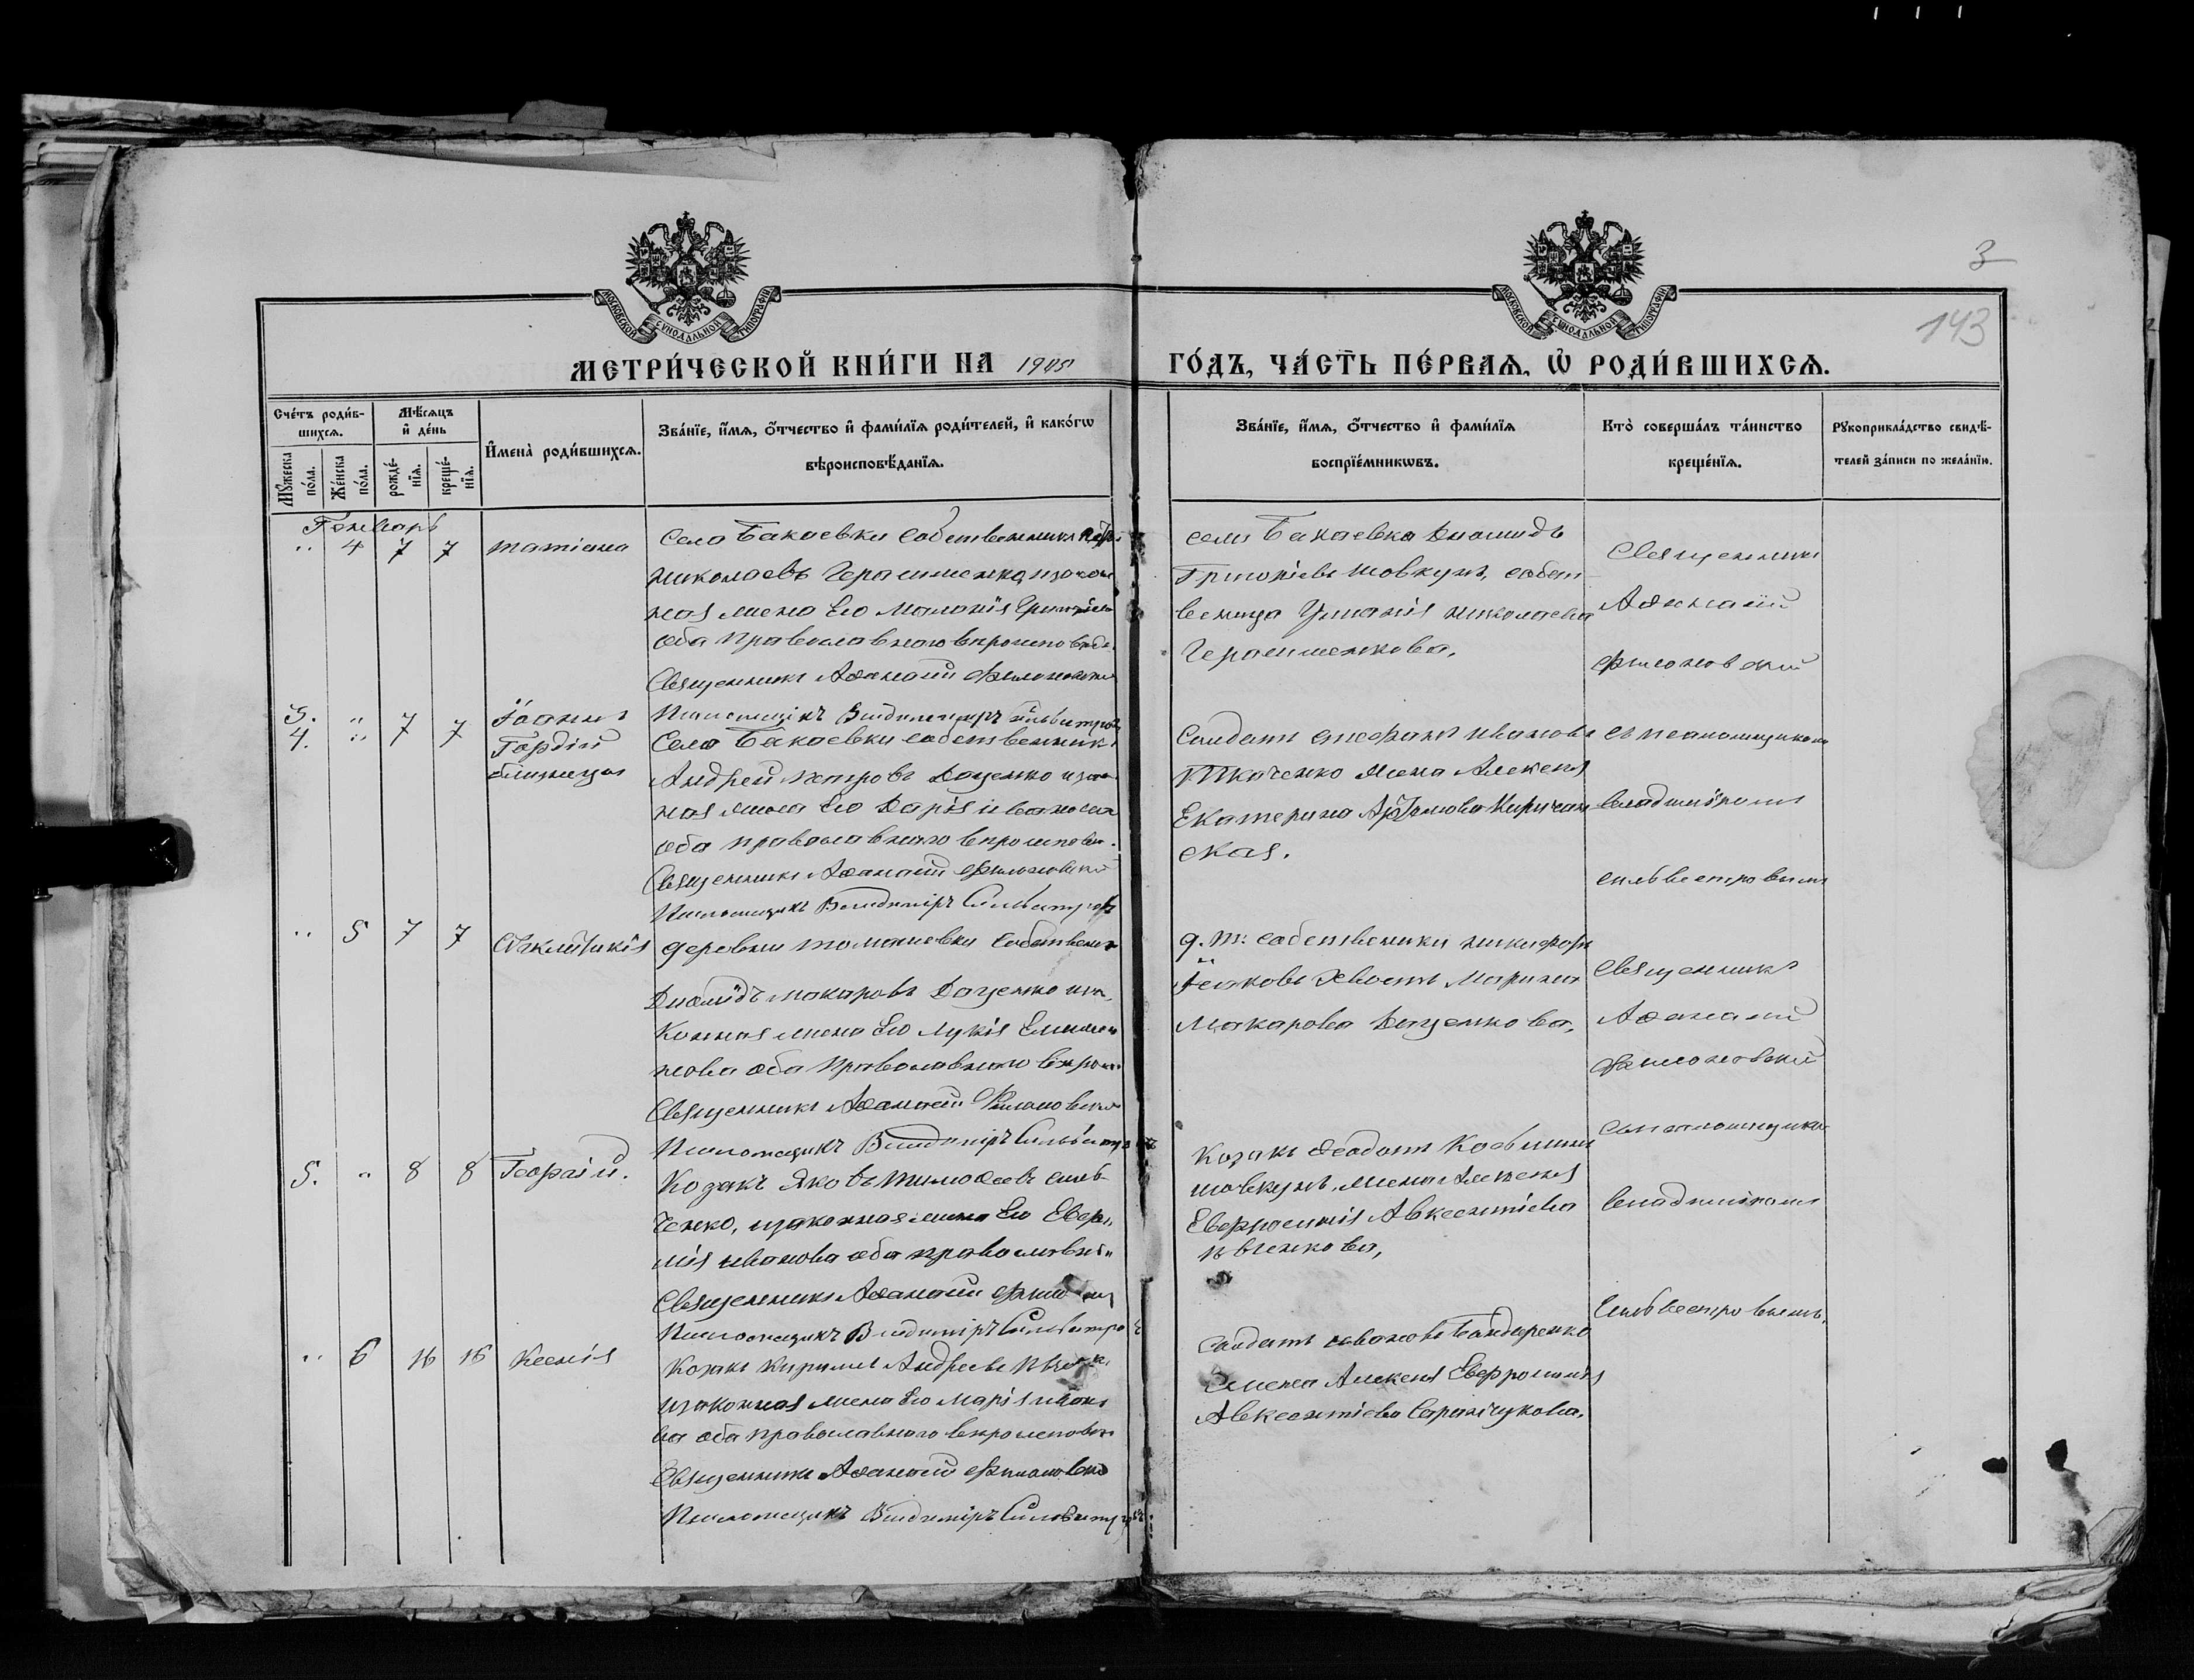 3
143
МОСКОВСКОЙ СѴНОДАЛЬНОЙ ТИПОГРАФІИ
МОСКОВСКОЙ СѴНОДАЛЬНОЙ ТИПОГРАФІИ
МЕТРИ́ЧЕСКОЙ КНИ́ГИ НА 1905 ГО́ДЪ, ЧА́СТЬ ПЕ́РВАЯ, Ѡ҆ РОДИ́ВШИХСЯ.
Сче́тъ роди́в-
шихся.
Мѣ́сяцъ
и҆ де́нь
Мꙋ́жеска по́ла.
Же́нска по́ла.
рожде́-нїя.
креще́-нїя.
И҆мена̀ роди́вшихся.
Зва́нїе, и҆́мя, ѻ҆́тчество и҆ фами́лїя роди́телей, и҆ како́гѡ
вѣроисповѣ́данїя.
Зва́нїе, и҆́мя, ѻ҆́тчество и҆ фами́лїя
воспрїе́мникѡвъ.
Кто̀ соверша́лъ та́инство
креще́нїя.
Рꙋкоприкла́дство свидѣ́-
телей за́писи по жела́нїю.
Генварь
" 4 7 7 Татіана
Села Бакаевки собственникъ
Николаевъ Герасименко, закон
ная жена его Маланія Григоріева
оба православнаго вѣроисповѣд.
Священникъ Аѳанасій Филоновскій
Псаломщикъ Владиміръ Сильвестровъ
села Бакаевка Діомидъ
Григоріевъ Шовкунъ, собст
венница Николаева
Герасименкова.
Священникъ
Аѳанасій
Филоновскій
3. " 7 7 Іоаннъ
4. " Гордій
близнецы
Села Бакаевки собственникъ
Андрей Петровъ Даценко закон
ная жена его Дарія Иванова
оба православнаго вѣроисповѣ.
Священникъ Аѳанасій Филоновскій
Псаломщикъ Владиміръ Сильвестровъ
Солдатъ Стефанъ Ивановъ
Ткаченко жена Алексѣя
Екатерина Артемова Киричан
ская.
съ псаломщикомъ
Владиміромъ
Сильвестровымъ
" 5 7 7
деревни Томашовки собствен
Діомидъ Макаровъ Даценко иза
конная жена его Лукія Емилія
нова оба православнаго вѣрои
Священникъ Аѳанасій Филоновскій
Псаломщикъ Владиміръ Сильвестровъ
д. Т. собственники Никифоръ
Іаковъ Хвостъ Марина
Макарова Даценкова,
Священникъ
Аѳанасій
Филоновскій
5. " 8 8 Георгій.
Козакъ Яковъ Тимоѳеевъ Силь
ченко, законная жена его Евфи
мія Иванова оба православн.
Священникъ Аѳанасій
Псаломщикъ Владиміръ Сильвестровъ
Козакъ Ѳеодотъ Косьминъ
Шовкунъ, жена Алексѣя
Евфросинія Авксентіева
Ивченкова,
съ псаломщикомъ
Владиміромъ
Сильвестровымъ.
" 6 16 16 Ксенія
Козакъ Кириллъ Андреевъ
законная жена его Марія Ивано
ва оба православнаго вѣроисповѣ
Священникъ Аѳанасій Филоновскій
Псаломщикъ Владиміръ Сильвестровъ
Солдатъ Ивановъ Бандуренко
жена Алексѣя Евфросинія
Авксентіева